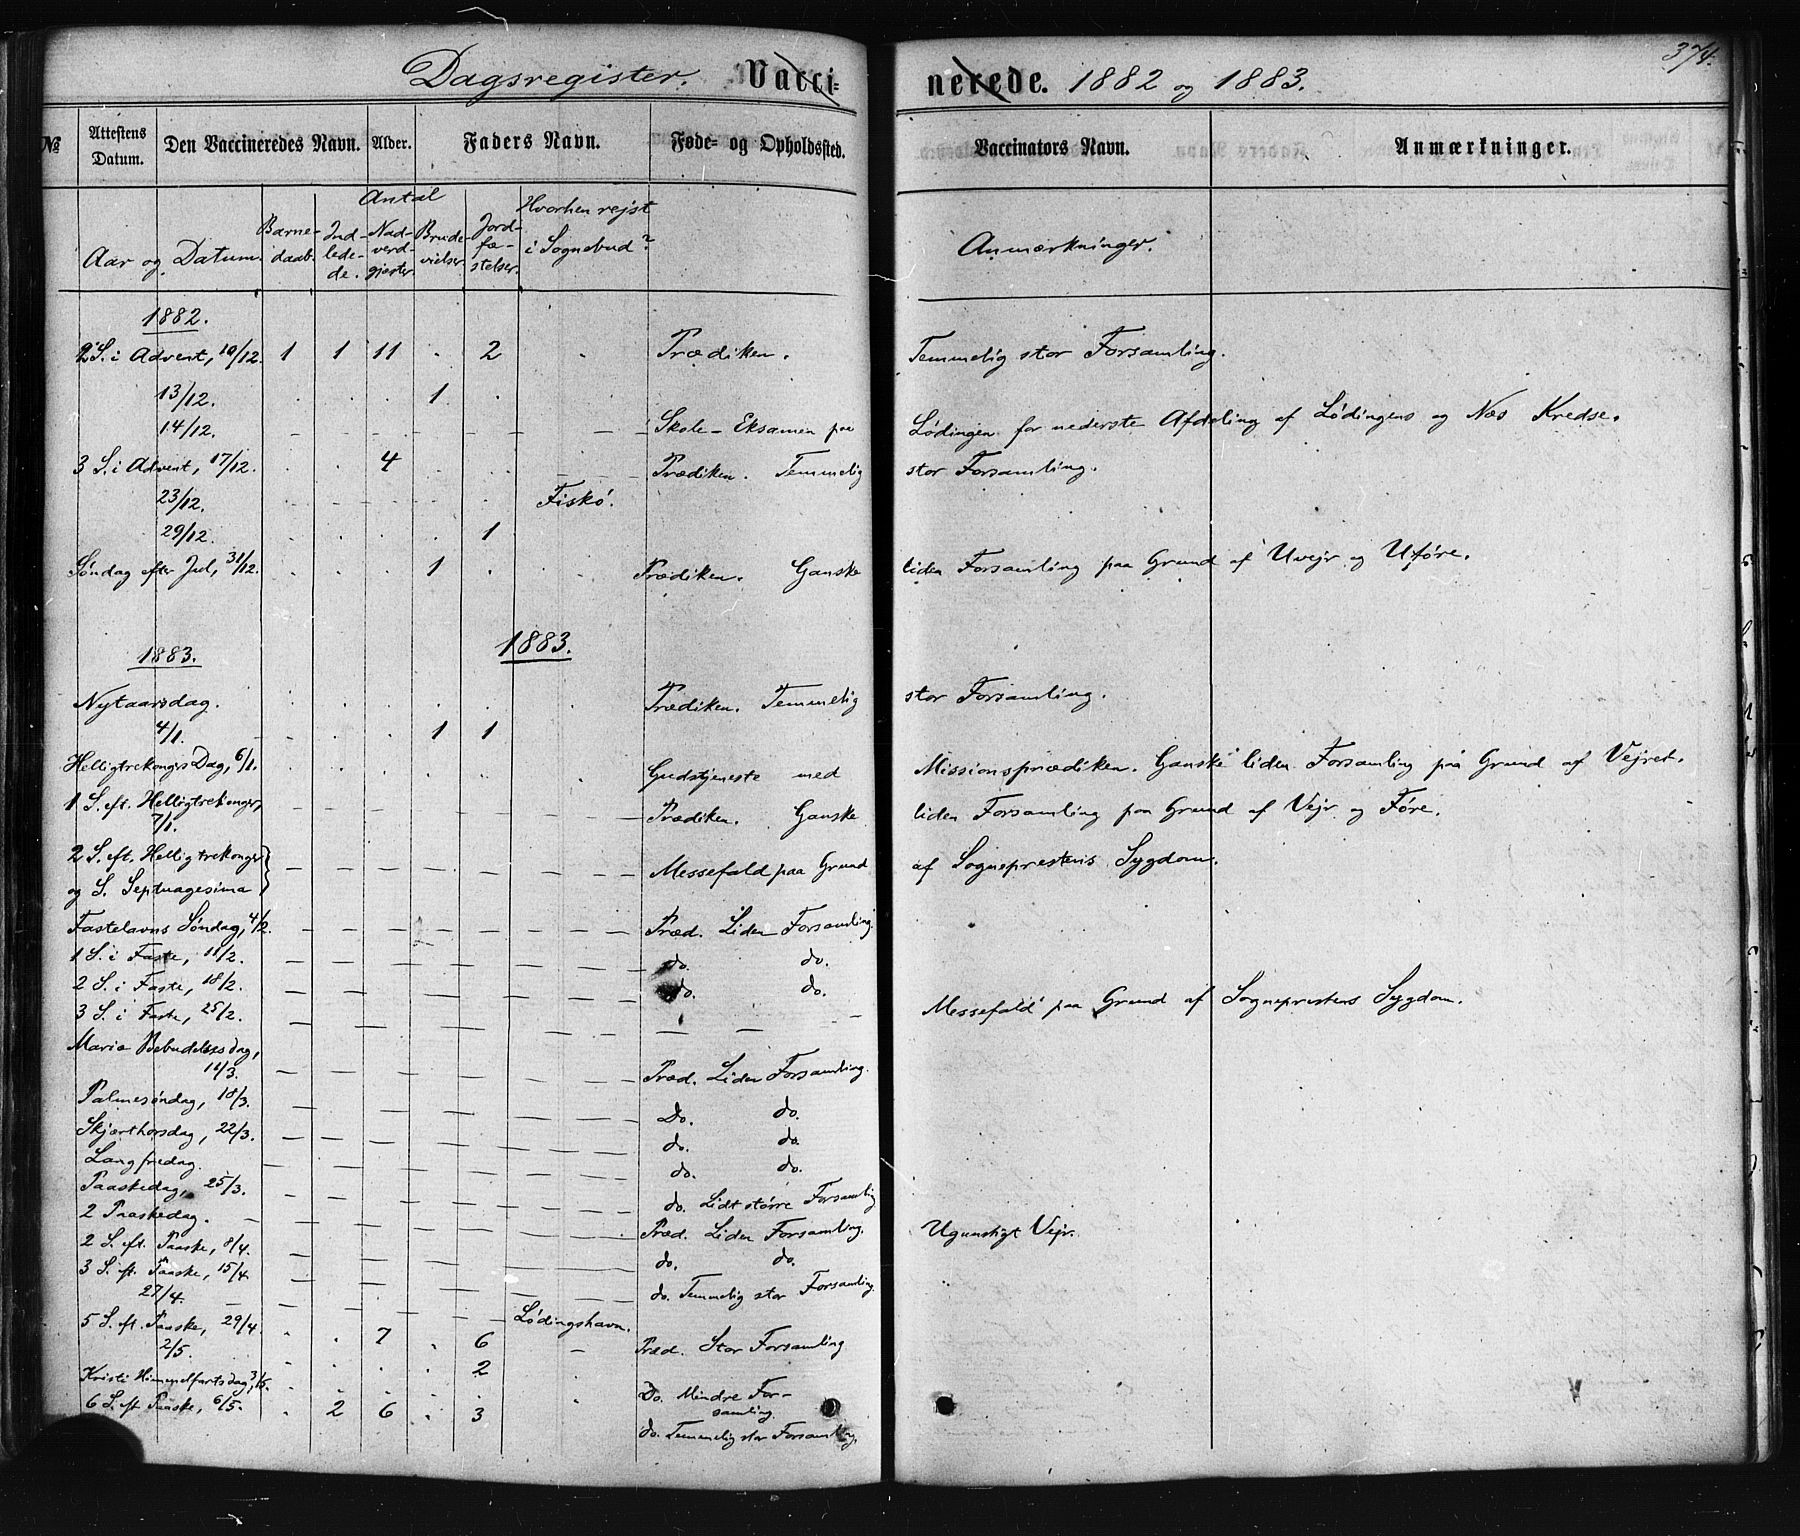 374.
Dagsregister. Vaccinerede. 1882 og 1883.
№ Attestens Datum. Den Vaccineredes Navn. Alder. Faders Navn. Føde- og Opholdssted. Vaccinators Navn. Anmærkninger.
Antal
Aar og Datum. Barnedaab. Indledede. Nadverdgjæster. Brudevielser. Jordfæstelser. Hvorhen rejst i Sognebud? Anmærkninger.
1882.
2 S. i Advent, 10/12. 1 1 11 . 2 . Prædiken. Temmelig stor Forsamling.
13/12. . . . 1 . .
14/12. – – – – – – – Skole-Eksamen paa Lødingen for nederste Afdeling af Lødingens og Næs Kredse.
3 S. i Advent, 17/12. . . 4 . . – – Prædiken. Temmelig stor Forsamling.
23/12. . . . . . Fiskø.
29/12. . . . . 1
Søndag efter Jul, 31/12. . . . 1 . . Prædiken. Ganske liden Forsamling paa Grund af Uvejr og Uføre.
1883.
1883.
Nytaarsdag. . . . . . . Prædiken. Temmelig stor Forsamling.
4/1. – . . . 1 1
Helligtrekongers Dag, 6/1. . . . . . . Gudstjeneste med Missionsprædiken. Ganske liden Forsamling på Grund af Vejret.
1 S. eft. Helligtrekonger, 7/1. – – – – – – – Prædiken. Ganske liden Forsamling paa Grund af Vejr og Føre.
2 S. eft. Helligtrekonger
og S. Septuagesima – – – – – – – Messefald paa Grund af Sogneprestens Sygdom.
Fastelavns Søndag, 4/2. – – – – – – – Præd. Liden Forsamling.
1 S. i Faste, 11/2. – – – – – – – do. do.
2 S. i Faste, 18/2. – – – – – – – do. do.
3 S. i Faste, 25/2. – – – – – – – – – – Messefald paa Grund af Sogneprestens Sygdom.
Mariæ Bebudelsesdag,
11/3. – – – – – – – Præd. Liden Forsamling.
Palmesøndag, 18/3. – – – – – – – Do. do.
Skjærthorsdag, 22/3. – – – – – – – do. do.
Langfredag. – – – – – – – do. do.
Paaskedag, 25/3. – – – – – – – do. Lidt større Forsamling
2 Paaskedag. – – – – – – – Præd. Liden Forsamling. Ugunstigt Vejr.
2 S. eft. Paaske, 8/4. – – – – – – – do. do.
3 S. eft. Paaske, 15/4. – – – – – – – do. Temmelig stor Forsamling.
27/4. – – – – – – – Lødingshavn.
5 S. eft. Paaske, 29/4. . . 7 . 6 – Præd. Stor Forsamling
2/5. . . . . 2
Kristi Himmelfartsdag, 3/5. . . . . . . Do. Mindre Forsamling.
6 S. eft. Paaske, 6/5. . 2 6 . 3 do. Temmelig stor Forsamling.